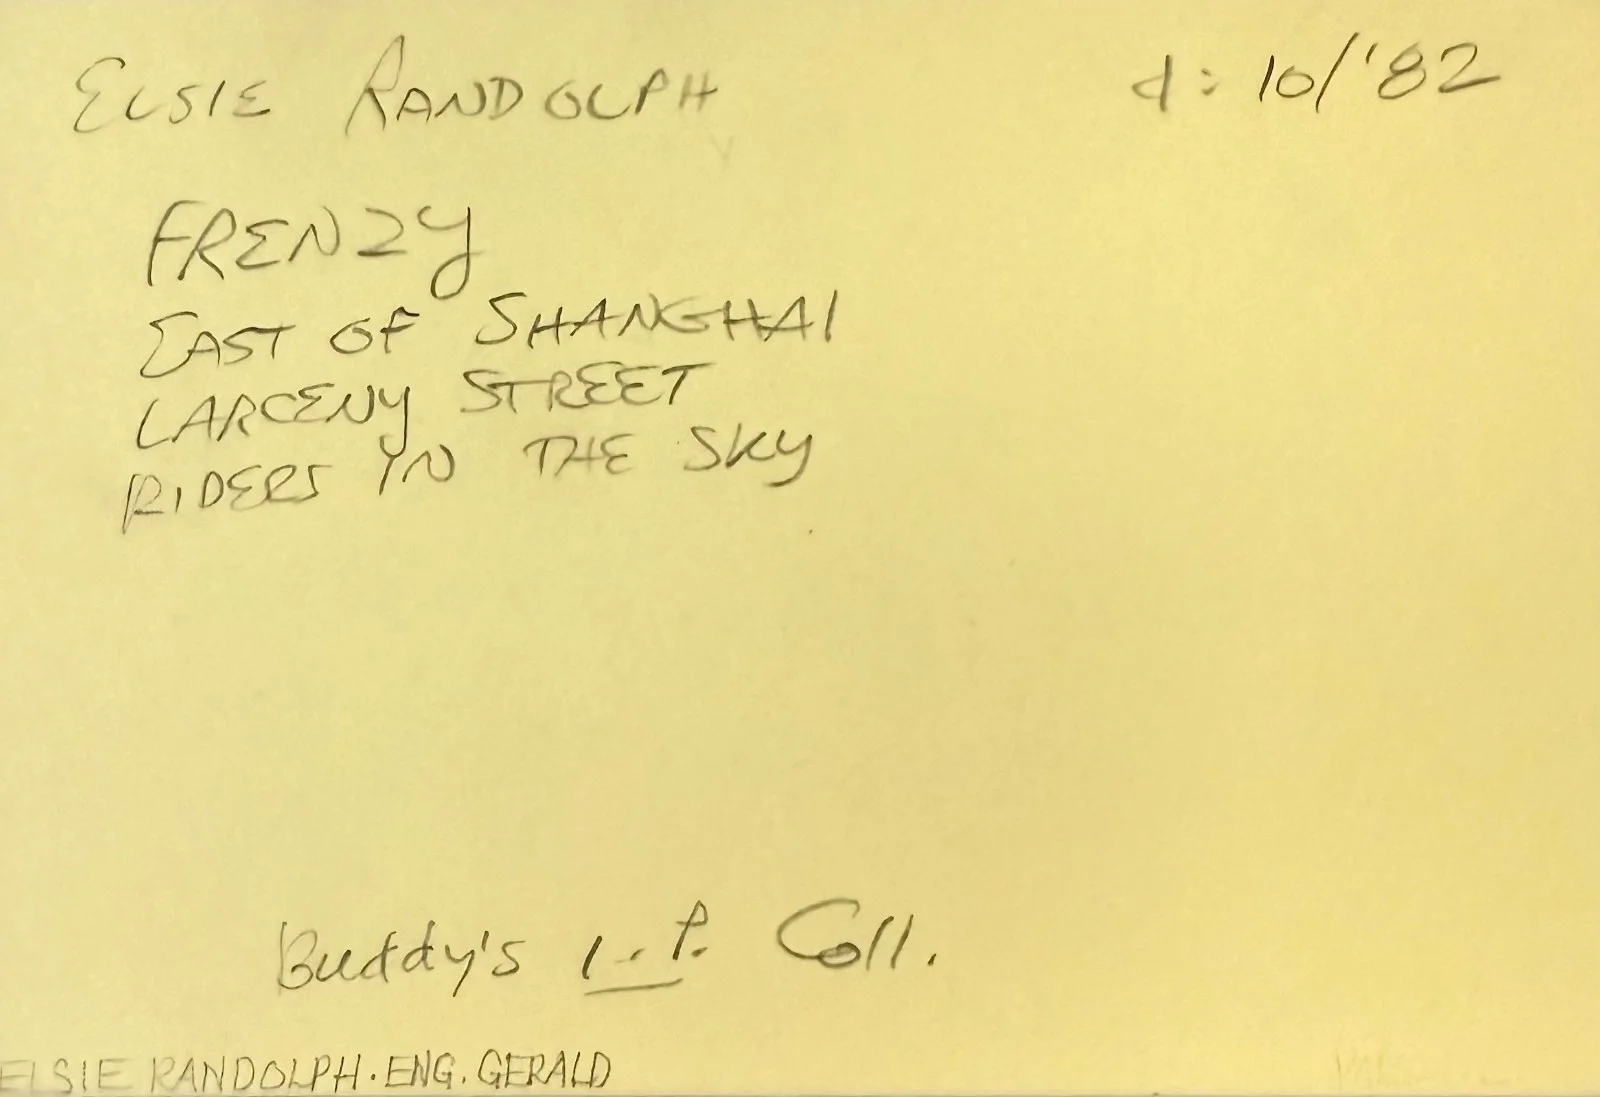 ELSIE RANDOLPH d: 10/'82
FRENZY
EAST OF SHANGHAI
LARCENY STREET
RIDERS IN THE SKY
Buddy's Coll.
ELSIE RANDOLPH. ENG. GERALD